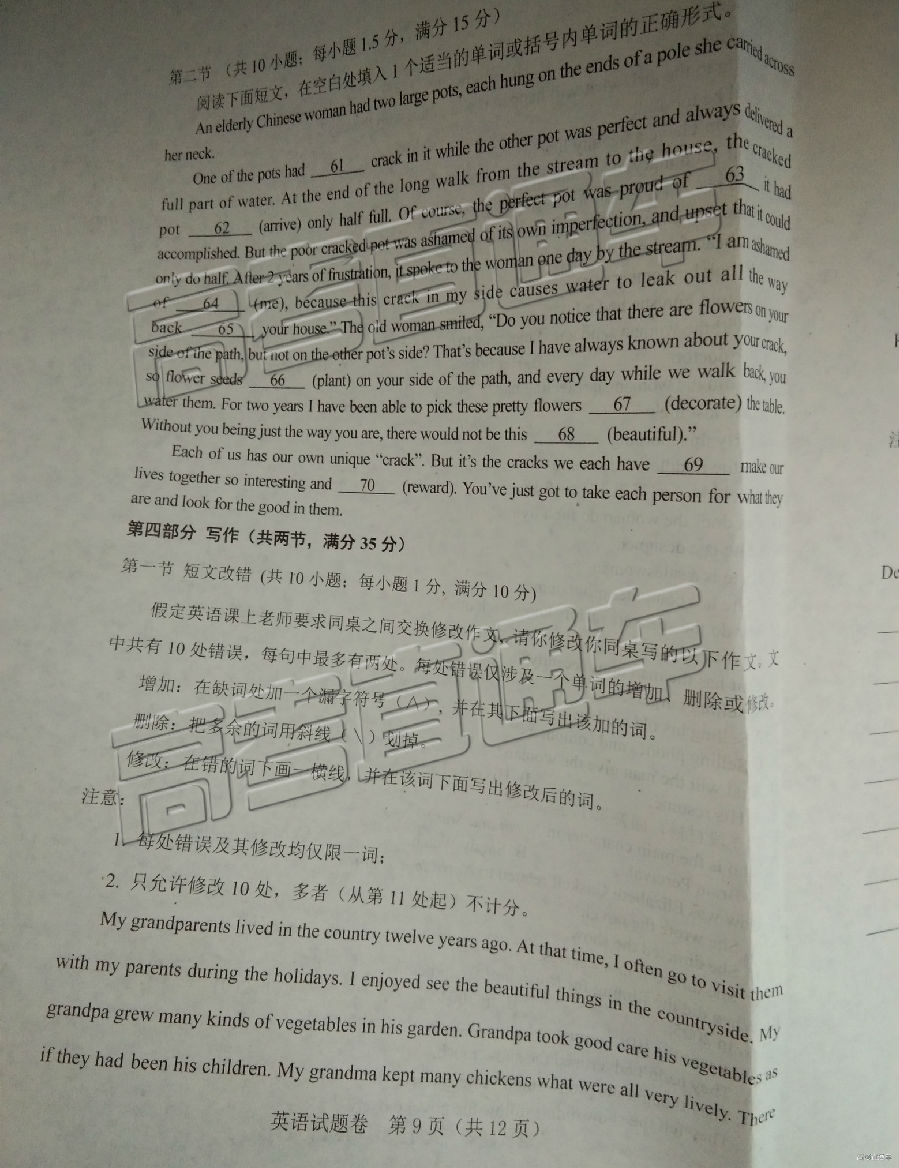 第二节 (共 10 小题; 每小题 1.5 分, 满分 15 分)
阅读下面短文, 在空白处填入 1 个适当的单词或括号内单词的正确形式。
An elderly Chinese woman had two large pots, each hung on the ends of a pole she carried across
her neck.
One of the pots had 61 crack in it while the other pot was perfect and always delivered a
full part of water. At the end of the long walk from the stream to the house, the cracked
pot 62 (arrive) only half full. Of course, the perfect pot was proud of 63 it had
accomplished. But the poor cracked pot was ashamed of its own imperfection, and upset that it could
only do half. After 2 years of frustration, it spoke to the woman one day by the stream. “I am ashamed
of 64 (me), because this crack in my side causes water to leak out all the way
back 65 your house.” The old woman smiled, “Do you notice that there are flowers on your
side of the path, but not on the other pot's side? That's because I have always known about your crack,
so flower seeds 66 (plant) on your side of the path, and every day while we walk back, you
water them. For two years I have been able to pick these pretty flowers 67 (decorate) the table.
Without you being just the way you are, there would not be this 68 (beautiful).”
Each of us has our own unique “crack”. But it's the cracks we each have 69 make our
lives together so interesting and 70 (reward). You've just got to take each person for what they
are and look for the good in them.
第四部分 写作 (共两节, 满分 35 分)
第一节 短文改错 (共 10 小题; 每小题 1 分, 满分 10 分)
假定英语课上老师要求同桌之间交换修改作文, 请你修改你同桌写的以下作文。文
中共有 10 处错误, 每句中最多有两处。每处错误仅涉及一个单词的增加、删除或修改。
增加: 在缺词处加一个漏字符号 (∧), 并在其下面写出该加的词。
删除: 把多余的词用斜线 (\) 划掉。
修改: 在错的词下画一横线, 并在该词下面写出修改后的词。
注意:
1. 每处错误及其修改均仅限一词;
2. 只允许修改 10 处, 多者 (从第 11 处起) 不计分。
My grandparents lived in the country twelve years ago. At that time, I often go to visit them
with my parents during the holidays. I enjoyed see the beautiful things in the countryside. My
grandpa grew many kinds of vegetables in his garden. Grandpa took good care his vegetables as
if they had been his children. My grandma kept many chickens what were all very lively. There
英语试题卷 第 9 页 (共 12 页)
高考直通车
高考直通车